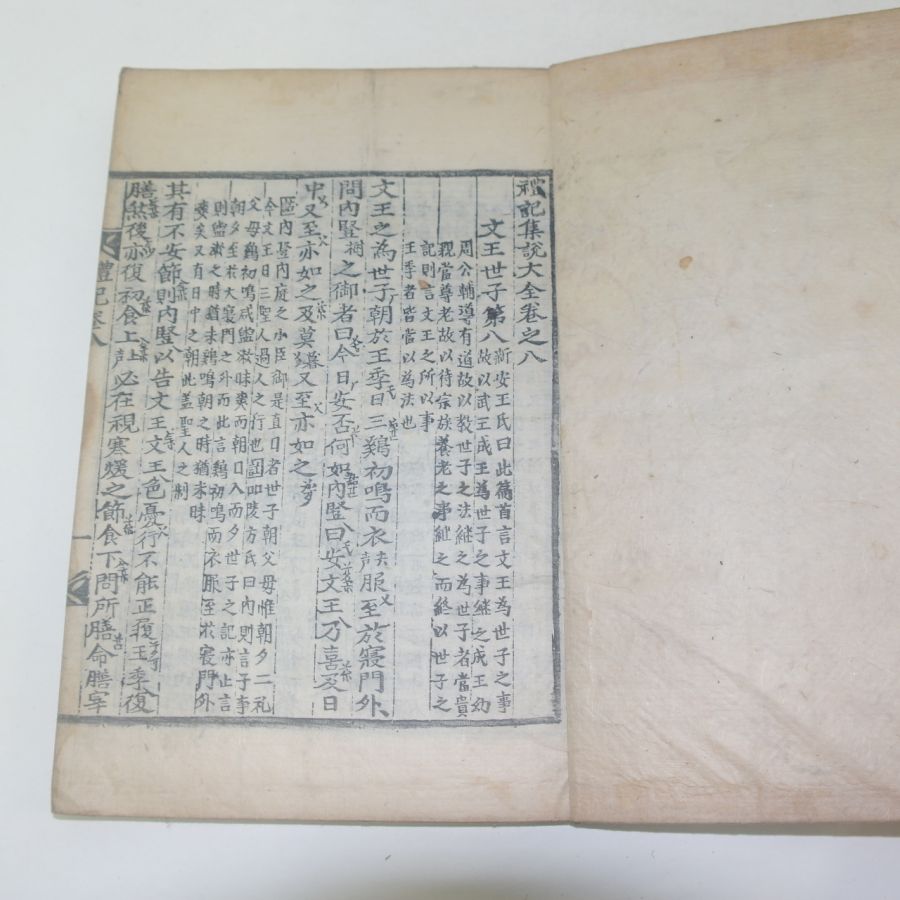 禮記集說大全卷之八
文王世子第八
新安王氏曰此篇首言文王為世子之事
故以武王成王為世子之事継之成王幼
周公輔導有道故以教世子之法継之為世子者當貴
親當尊老故以待宗族養老之事継之而終以世子之
記則言文王之所以事
王季者皆當以為法也
文王之為世子朝於王季日三鷄初鳴而衣去声服至於寢門外
問內竪之御者曰今日安否何如內竪曰安文王乃喜及日
中又至亦如之及莫暮又至亦如之
內竪內庭之小臣御是直日者世子朝父母惟朝夕二礼
今文王日三聖人過人之行也 嚴陵方氏曰內則言子事
父母鷄初鳴咸盥漱昧爽而朝日入而夕世子之記亦止言
朝夕至於大寢門之外而此言鷄初鳴而衣服至於寢門外
則盥漱之時猶未鷄鳴朝之時猶未昧
爽矣又有日中之朝此盖聖人之制
其有不安節則內竪以告文王文王色憂行不能正履王季復
膳然後亦復初食上上声必在視寒煖之節食下問所膳命膳宰
禮記卷八
一